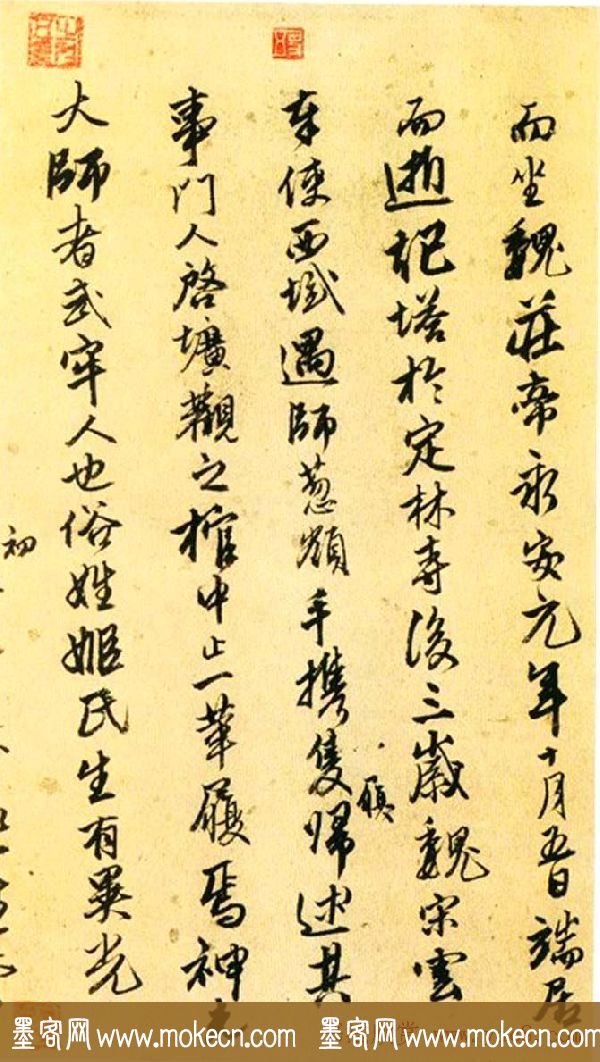 而坐魏莊帝永安元年十月五日端居
而逝祀塔於定林寺後三歲魏宋雲
奉使西域遇師葱嶺手攜隻歸述其
履
事門人啓壙觀之棺中止一革履焉神光
大師者武牢人也俗姓姬氏生有異光
初
墨客网 www.mokecn.com 墨客网 www.mokecn.com